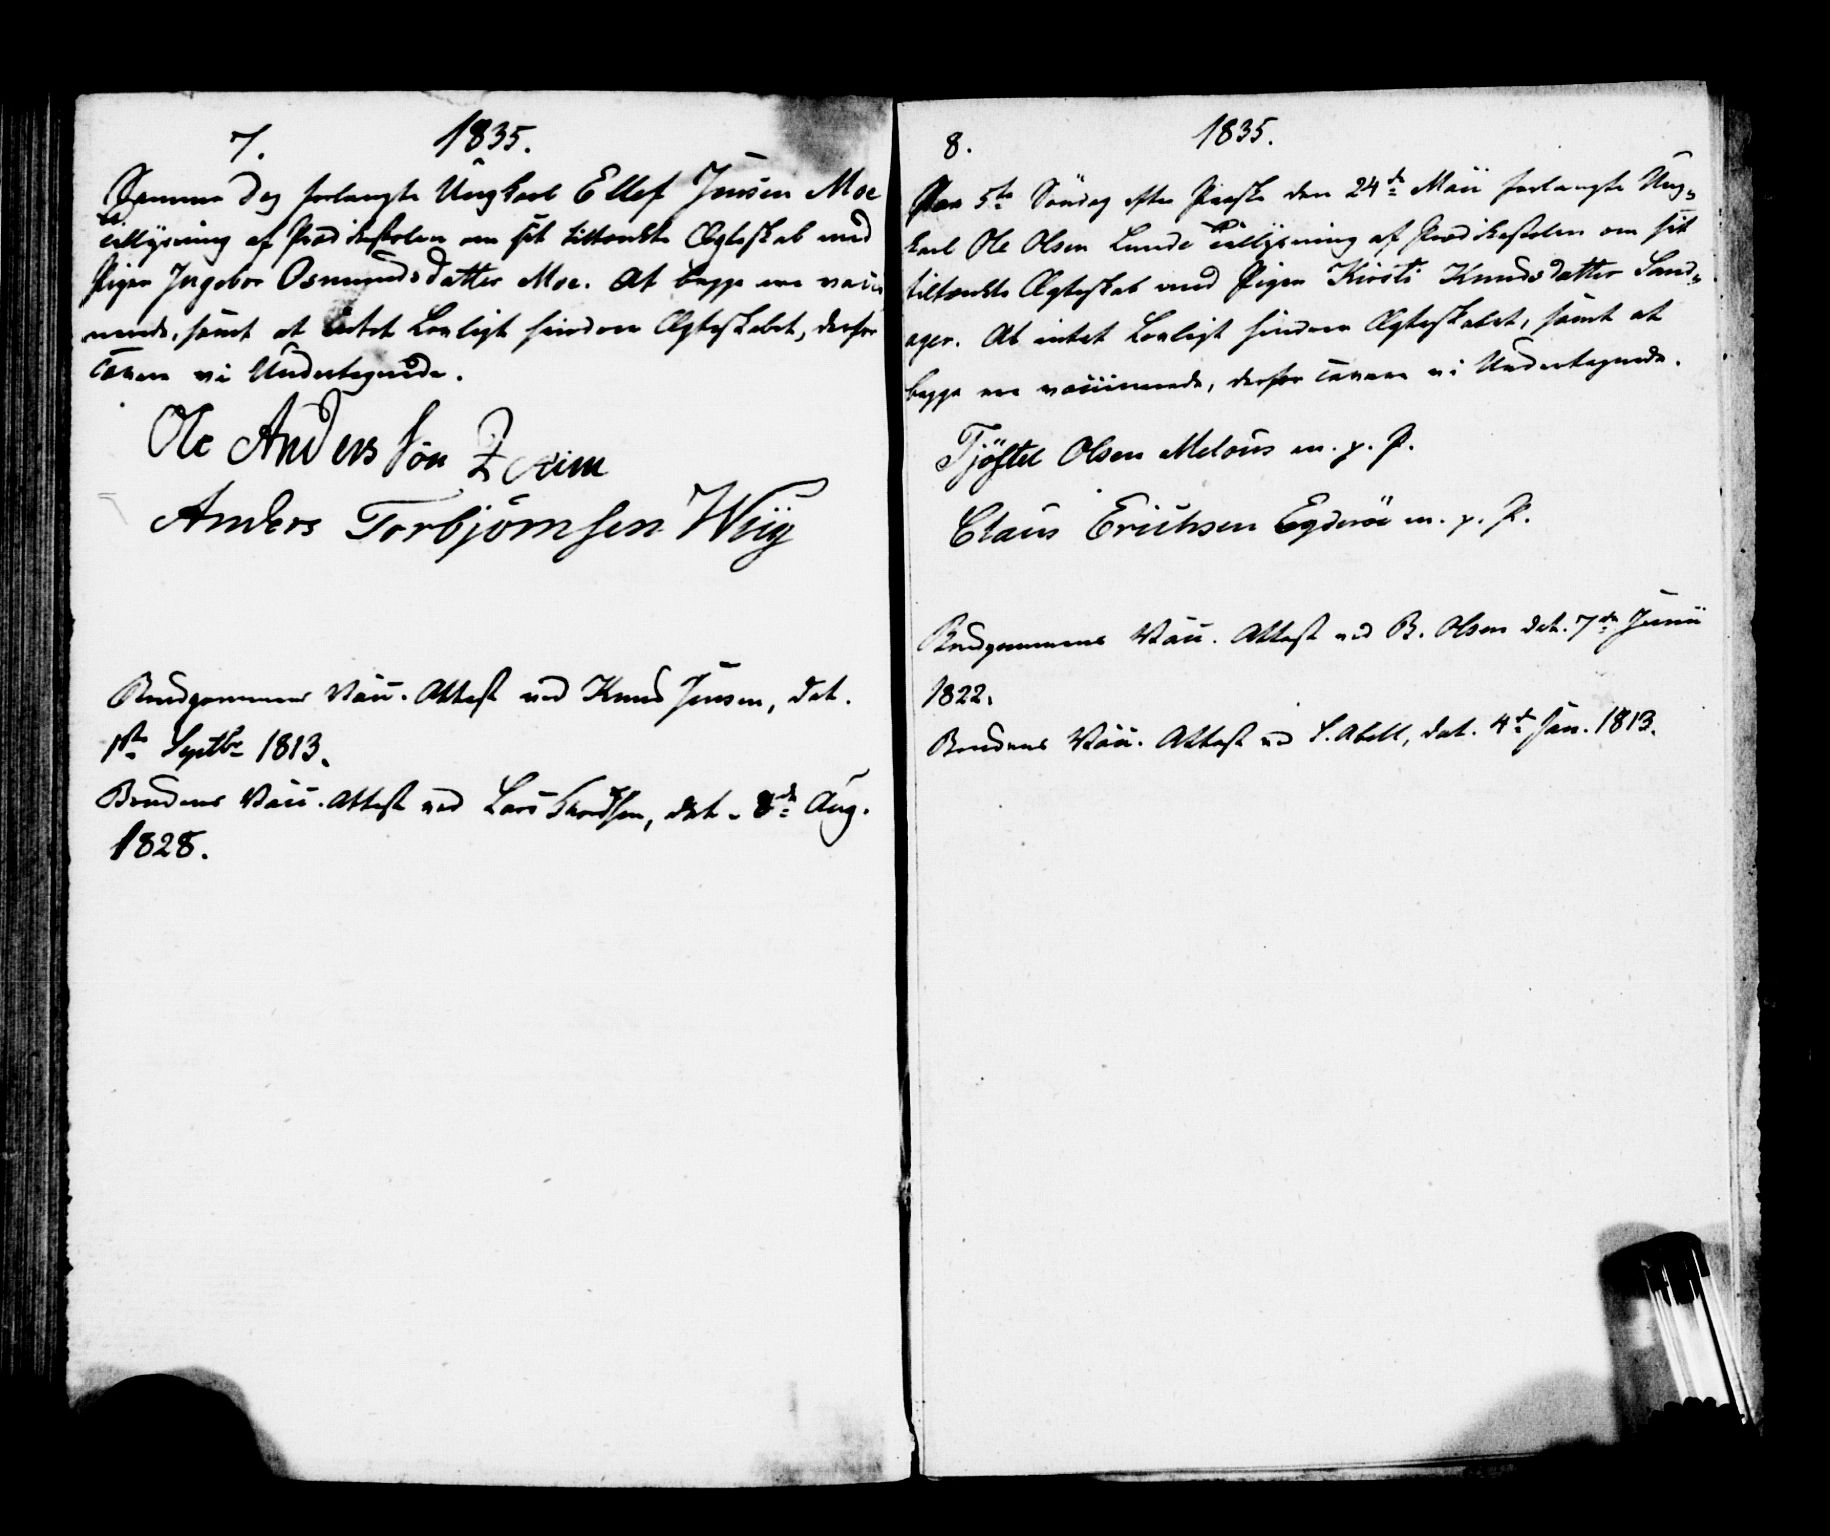 7. 1835.
Samme Dag forlangte Ungkarl Ellef Jensen Moe
Tillysning af Prædikestolen om sit tiltænkte Ægteskab med
Pigen Ingebor Osmundsdatter Moe. At begge ere vacci
nerede, samt at intet Lovligt hindrer Ægteskabet, derfor
cavere vi Undertegnede.
Ole Anders Søn
Anders Torbjørnsen Wiig
Brudgommens Vacc. Attest ved Knud Jensen, dat.
1ste Septbr 1813.
Brudens Vacc. Attest ved Lars, dat. 8de Aug.
1828.
8. 1835.
Den 5te Søndag efter Paaske den 24de Maii forlangte Ung-
karl Ole Olsen Lunde Tillysning af Prædikestolen om sit
tiltænkte Ægteskab med Pigen Kirsti Knudsdatter Sand-
ager. At intet Lovligt hindrer Ægteskabet, samt at
begge ere vaccinerede, derfor cavere vi Undertegnede.
Tjøstel Olsen Melaas m. p. P.
Claus Erichsen Egderøe m. p. P.
Brudgommens Vacc. Attest ved B. Olsen dat. 7de Junii
1822.
Brudens Vacc. Attest ved S. Abell, dat. 4de Jan. 1813.